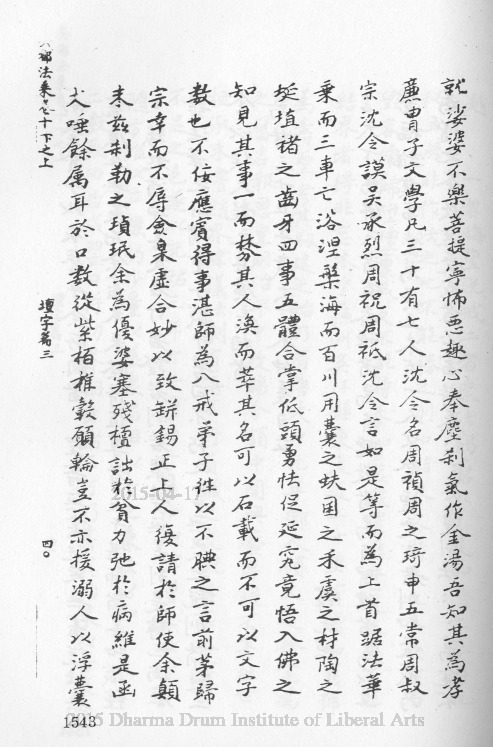 就娑婆不樂菩提寧怖悪趣心奉塵刹氣作金湯吾知其為孝
廉胄子文學凡三十有七人沈令名周禎周之琦申五常周叔
宗沈令謨吳承烈周祝周祗沈令言如是等而為上首踞法華
乗而三車亡浴涅槃海而百川用囊之蚨囷之禾虞之材陶之
埏埴褚之齒牙四事五體合掌低頭勇怯促延究竟悟入佛之
知見其事一而棼其人渙而萃其名可以石載而不可以文字
教也不佞應賓得事湛師為八戒弟子徃以不腆之言前茅歸
宗幸而不辱僉臬虛合妙以致缾錫正上人復請於師使余顛
末茲刹勒之瑱珉余為優婆塞殘檀詘於貧力弛於病維是函
大唾餘属耳於口数從紫栢椎轂願輪豈不亦援溺人以浮囊
法乗
十下之上
壇字葊三
四〇
1543
2015-04-17
2015 Dharma Drum Institute of Liberal Arts